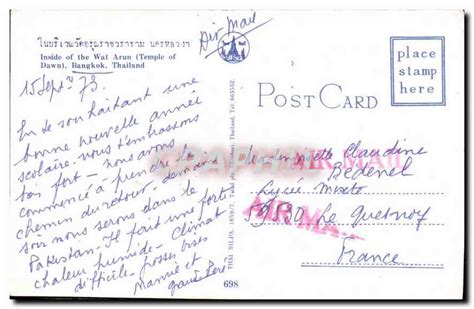 ในบริเวณวัดอรุณราชวราราม นครหลวงฯ
Inside of the Wat Arun (Temple of
Dawn), Bangkok, Thailand
Air Mail
place
stamp
here
POST CARD
15 Sept 73
En te souhaitant une
bonne nouvelle année
scolaire nous t'embrassons
bien fort - nous avons
commencé à prendre le
chemin du retour - demain
soir nous serons dans le
Pakistan - Il fait une forte
chaleur humide - Climat
difficile - grosses bises
Mamie et
grand Père
AIR MAIL
Mademoiselle Claudine
Bedenel
Lycée mixte
59530 Le Quesnoy
France
AIR MA
698